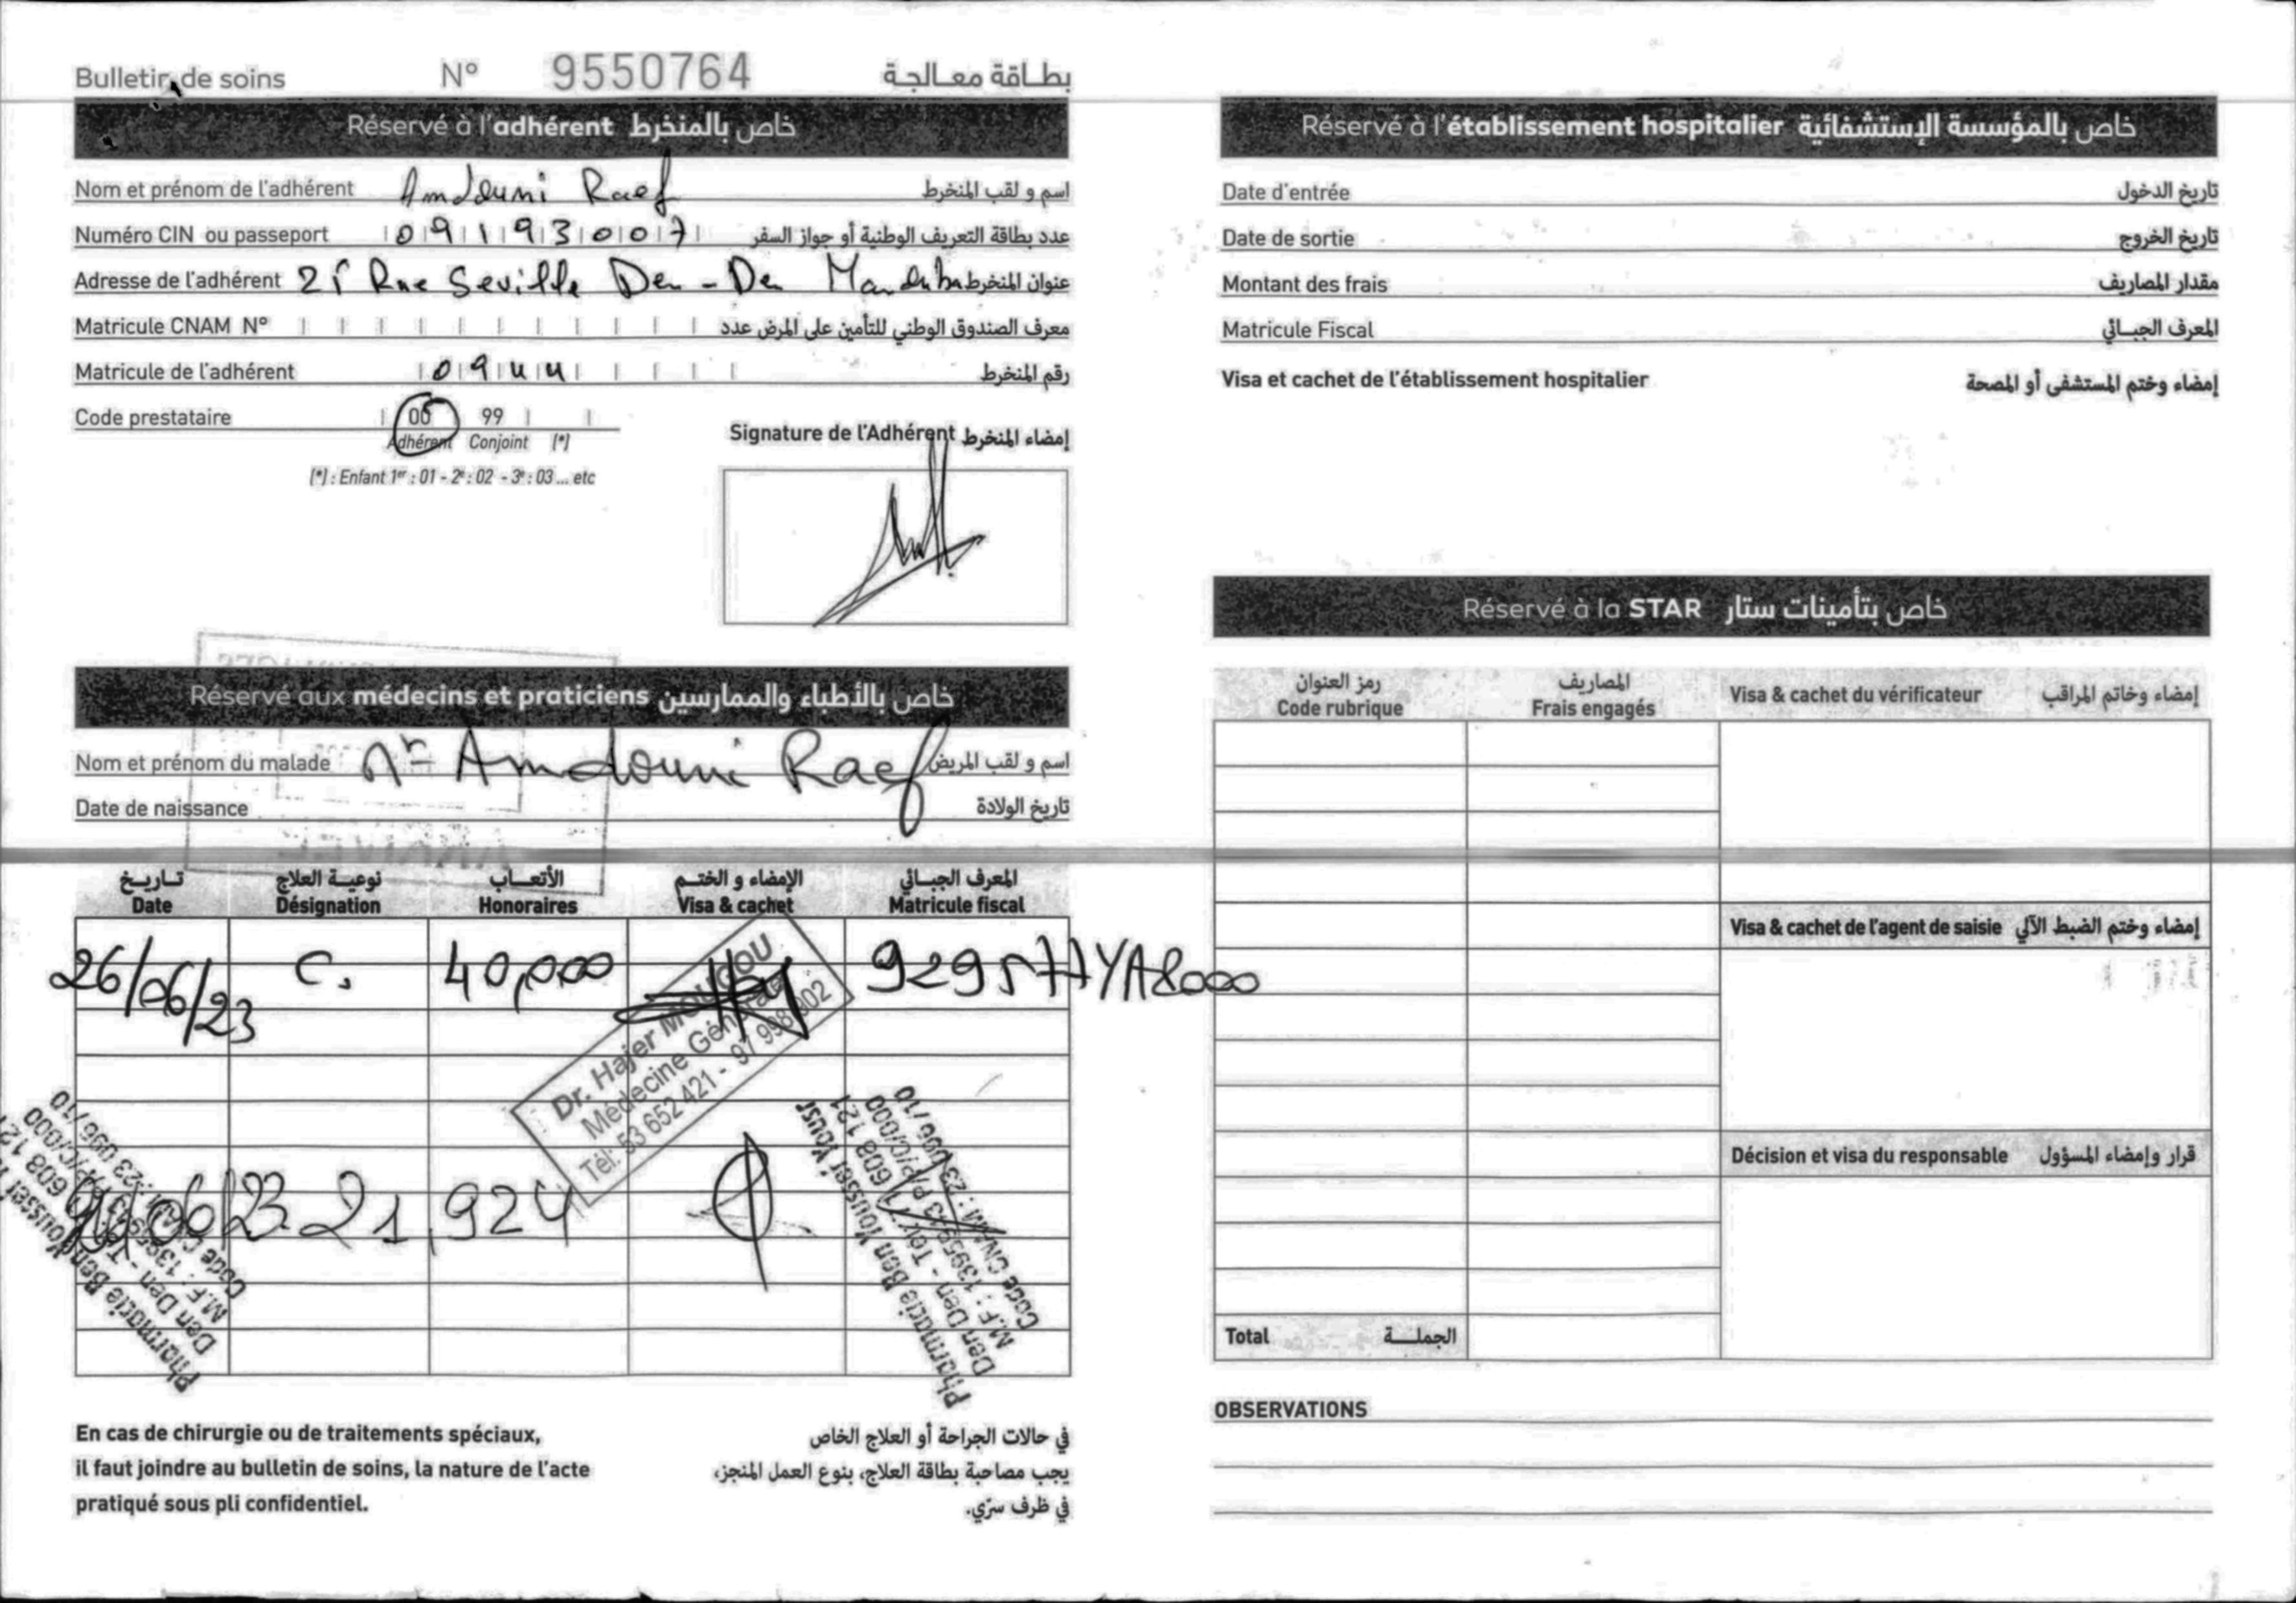 Bulletin de soins N° 9550764 بطاقة معالجة
Réservé à l'adhérent خاص بالمنخرط
Nom et prénom de l'adhérent Amdouni Raef اسم و لقب المنخرط
Numéro CIN ou passeport 09193007 عدد بطاقة التعريف الوطنية أو جواز السفر
Adresse de l'adhérent Rue Seville Den-Den Manouba عنوان المنخرط
Matricule CNAM N° معرف الصندوق الوطني للتأمين على المرض عدد
Matricule de l'adhérent 0944 رقم المنخرط
Code prestataire 00 99
Adhérent Conjoint (*)
(*) : Enfant 1er : 01 - 2e : 02 - 3e : 03 ... etc
Signature de l'Adhérent إمضاء المنخرط
Réservé aux médecins et praticiens خاص بالأطباء والممارسين
Nom et prénom du malade Mr Amdouni Raef اسم و لقب المريض
Date de naissance تاريخ الولادة
تاريخ نوعية العلاج الأتعاب الإمضاء و الختم المعرف الجبائي
Date Désignation Honoraires Visa & cachet Matricule fiscal
26/06/23 C. 40,000
Dr. Hajer MOUGOU
Médecine Générale
Tél: 53 652 421 - 97 998 002
06/23 21,924
Pharmacie Ben Yousser
Den Den - Tél
M.F : P/C/000
Code CNAM : 23 096/10
Pharmacie Ben Yousser
Den Den - Tél 608 121
M.F : P/C/000
Code CNAM : 23 096/10
En cas de chirurgie ou de traitements spéciaux,
il faut joindre au bulletin de soins, la nature de l'acte
pratiqué sous pli confidentiel.
في حالات الجراحة أو العلاج الخاص
يجب مصاحبة بطاقة العلاج، بنوع العمل المنجز،
في ظرف سرّي.
Réservé à l'établissement hospitalier خاص بالمؤسسة الإستشفائية
Date d'entrée تاريخ الدخول
Date de sortie تاريخ الخروج
Montant des frais مقدار المصاريف
Matricule Fiscal المعرف الجبائي
Visa et cachet de l'établissement hospitalier إمضاء وختم المستشفى أو المصحة
Réservé à la STAR خاص بتأمينات ستار
رمز العنوان المصاريف
Code rubrique Frais engagés Visa & cachet du vérificateur إمضاء وخاتم المراقب
Visa & cachet de l'agent de saisie إمضاء وختم الضبط الآلي
Décision et visa du responsable قرار وإمضاء المسؤول
Total الجملة
OBSERVATIONS